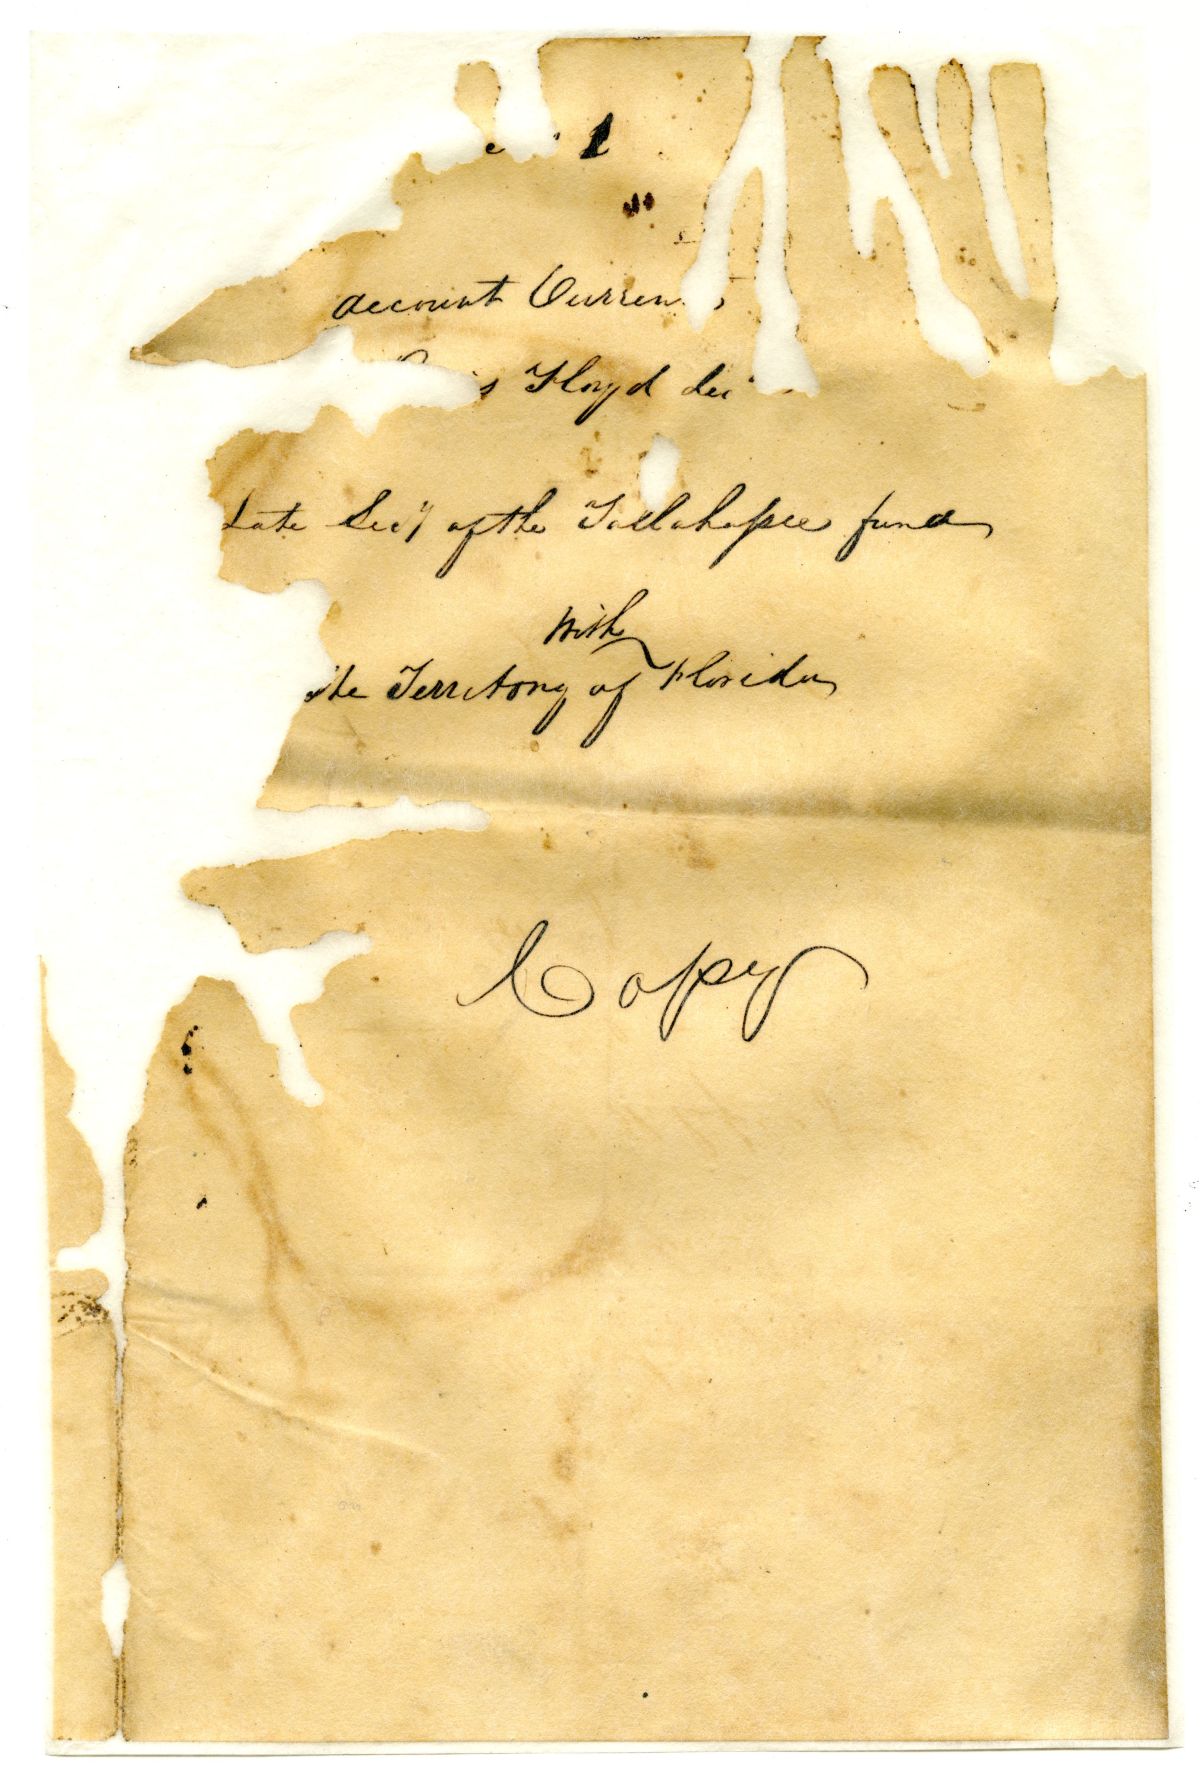 1
Account Curren
s Floyd
Late Secy of the Tallahassee fund
With
the Territory of Florida
Copy